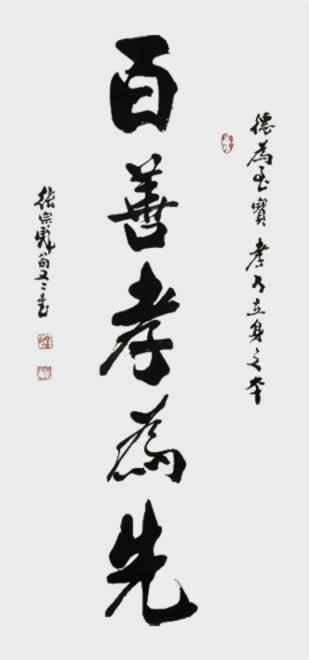 德為至寶 孝乃立身之本
百善孝為先
宗